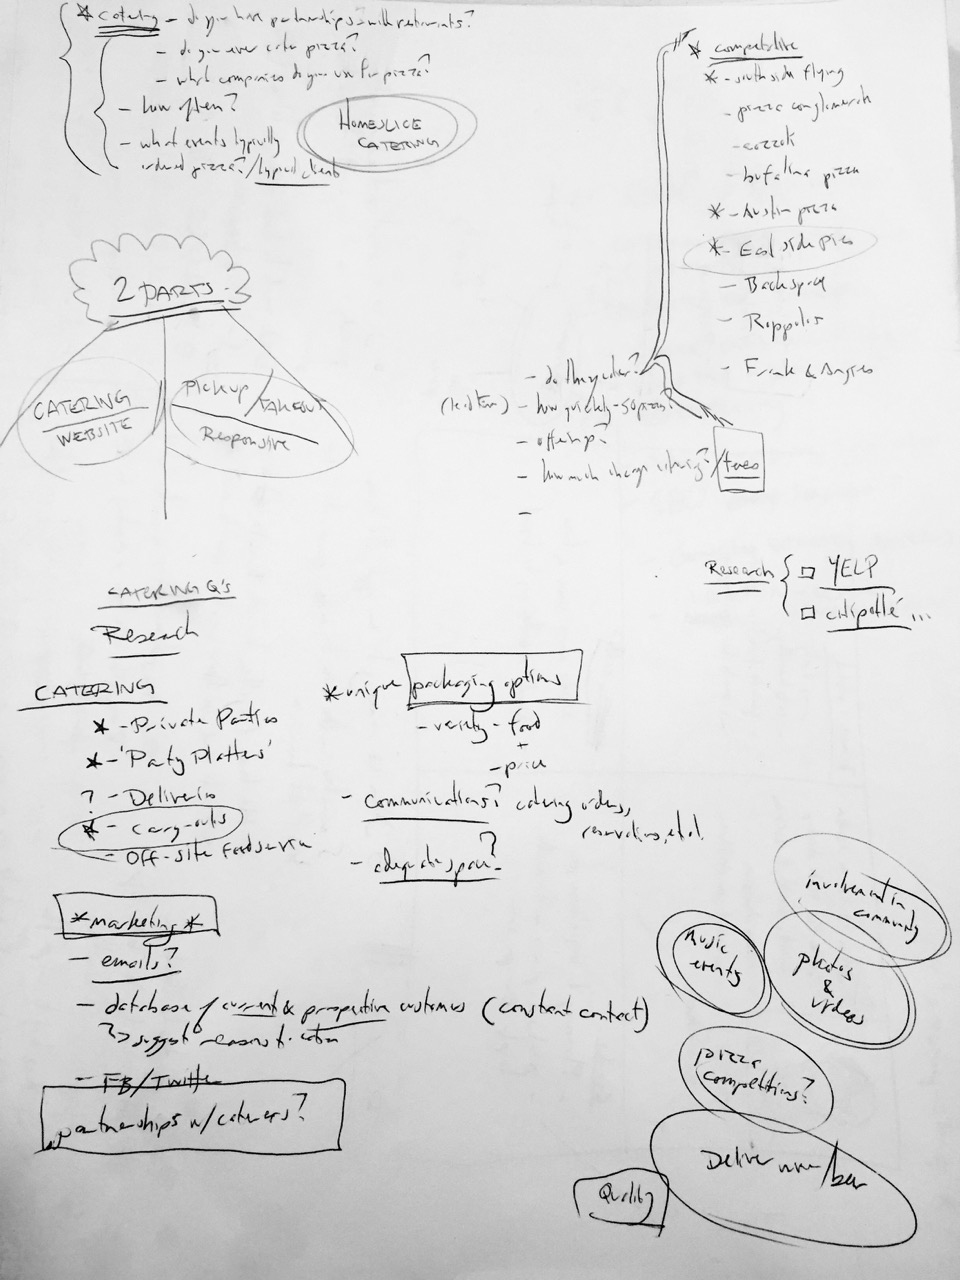 * catering - do you have partnerships with restaurants?
- do you ever cater pizza?
- what companies do you use for pizza?
- how often?
- what events typically
ordered pizza? / typical client
HOMESLICE
CATERING
* competitive
* - southside flying
- pizza conglomerate
- bufalina pizza
* - Austin pizza
* - East side Pies
- Backspace
- Roppolos
- Frank & Angies
2 PARTS
CATERING
WEBSITE
Pickup / TAKEOUT
Responsive
- do they cater?
(lead time) - how quickly - 50 pizzas?
- offering?
- how much charge catering? /
-
Research { □ YELP
□ chipotlé ...
CATERING Q's
Research
CATERING
* - Private Parties
* - 'Party Platters'
? - Deliveries
* - Carry-outs
- Off-site food service
* unique packaging options
- variety - food
+
- price
- Communications? catering orders,
reservations, etc.
- adequate space?
* marketing *
- emails?
- database of current & prospective customers (constant contact)
suggest reasons to cater
- FB/Twitter
partnerships w/ caterers?
involvement in
community
music
events
photos
&
videos
pizza
competitions?
Deliver
Quality